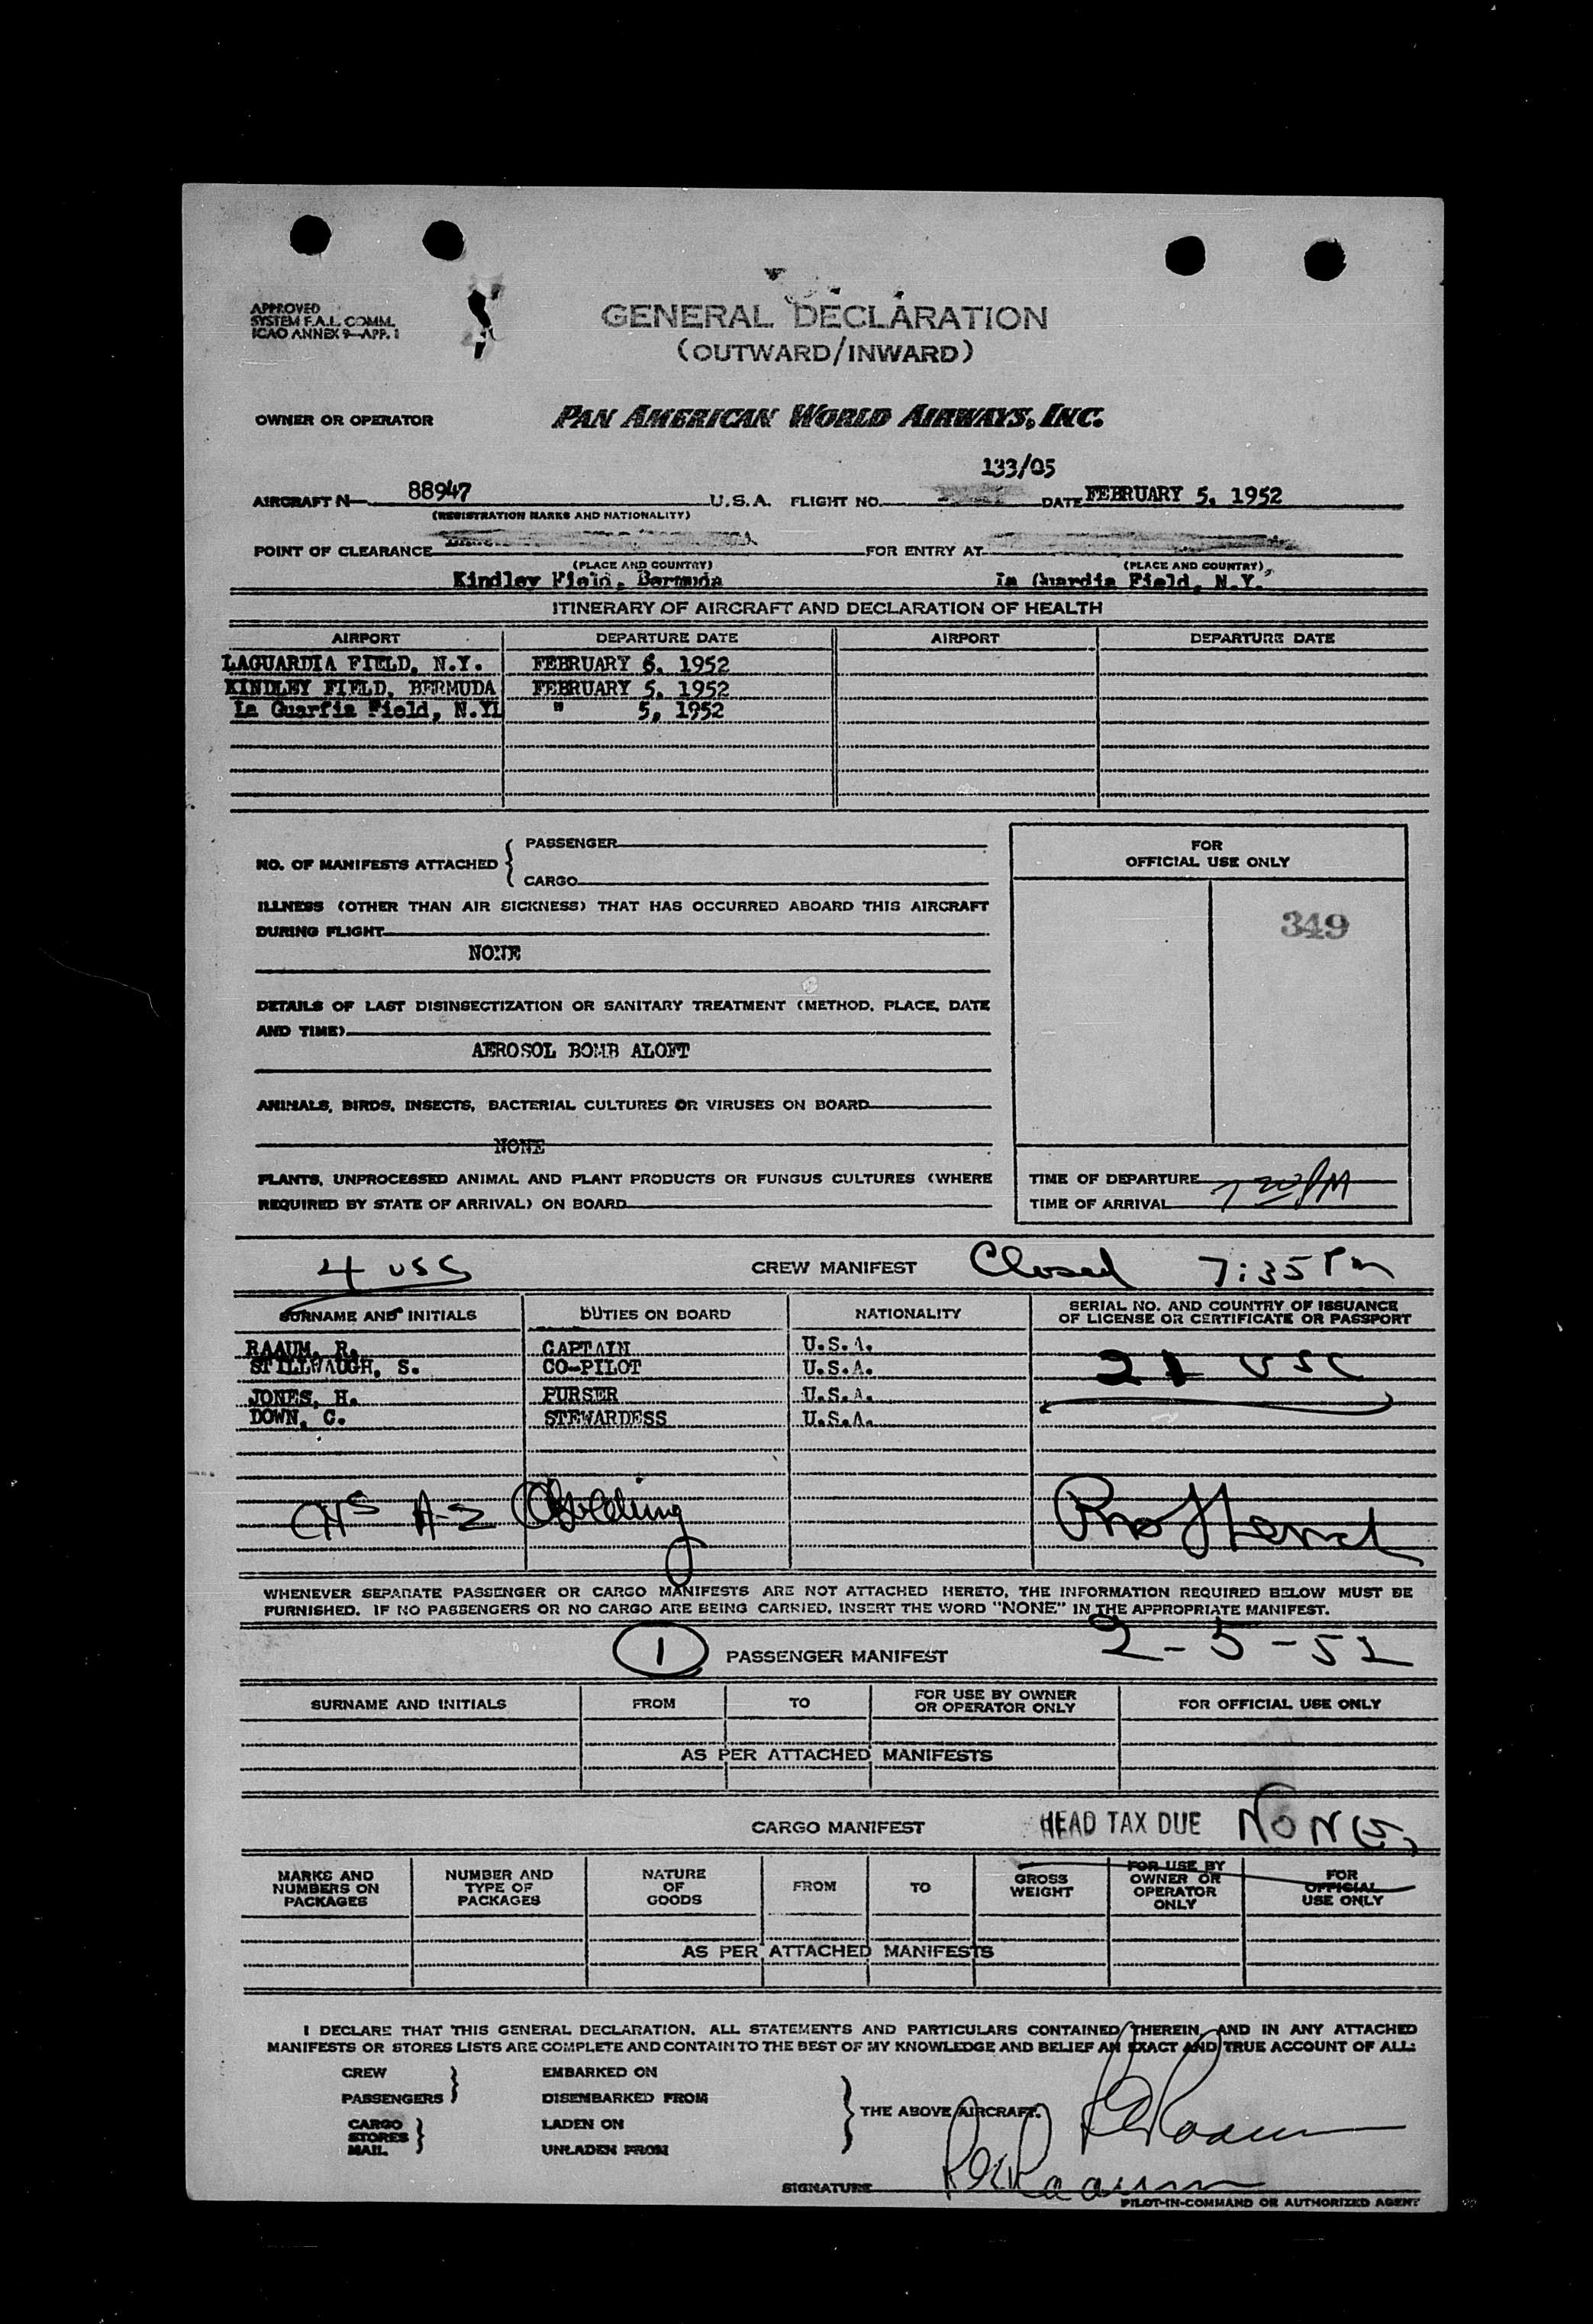 APPROVED
SYSTEM F.A.L. COMM.
ICAO ANNEX 9—APP. 1
GENERAL DECLARATION
(OUTWARD/INWARD)
OWNER OR OPERATOR PAN AMERICAN WORLD AIRWAYS, INC.
133/05
AIRCRAFT N— 88947 U.S.A. FLIGHT NO. DATE FEBRUARY 5, 1952
(REGISTRATION MARKS AND NATIONALITY)
POINT OF CLEARANCE FOR ENTRY AT
(PLACE AND COUNTRY) (PLACE AND COUNTRY)
Kindley Field, Bermuda La Guardia Field, N.Y.
ITINERARY OF AIRCRAFT AND DECLARATION OF HEALTH
AIRPORT DEPARTURE DATE AIRPORT DEPARTURE DATE
LAGUARDIA FIELD, N.Y. FEBRUARY 6, 1952
KINDLEY FIELD, BERMUDA FEBRUARY 5, 1952
La Guarfia Field, N.YL " 5, 1952
NO. OF MANIFESTS ATTACHED { PASSENGER
CARGO
FOR
OFFICIAL USE ONLY
349
ILLNESS (OTHER THAN AIR SICKNESS) THAT HAS OCCURRED ABOARD THIS AIRCRAFT
DURING FLIGHT
NONE
DETAILS OF LAST DISINSECTIZATION OR SANITARY TREATMENT (METHOD, PLACE, DATE
AND TIME)
AEROSOL BOMB ALOFT
ANIMALS, BIRDS, INSECTS, BACTERIAL CULTURES OR VIRUSES ON BOARD
NONE
PLANTS, UNPROCESSED ANIMAL AND PLANT PRODUCTS OR FUNGUS CULTURES (WHERE
REQUIRED BY STATE OF ARRIVAL) ON BOARD
TIME OF DEPARTURE
TIME OF ARRIVAL 7 20 PM
4 USC CREW MANIFEST Closed 7:35 Pm
SURNAME AND INITIALS DUTIES ON BOARD NATIONALITY SERIAL NO. AND COUNTRY OF ISSUANCE
OF LICENSE OR CERTIFICATE OR PASSPORT
RAAUM, R. CAPTAIN U.S.A.
STILLWAUGH, S. CO-PILOT U.S.A. 21 USC
JONES, H. PURSER U.S.A.
DOWN, C. STEWARDESS U.S.A.
WHENEVER SEPARATE PASSENGER OR CARGO MANIFESTS ARE NOT ATTACHED HERETO, THE INFORMATION REQUIRED BELOW MUST BE
FURNISHED. IF NO PASSENGERS OR NO CARGO ARE BEING CARRIED, INSERT THE WORD "NONE" IN THE APPROPRIATE MANIFEST.
1 PASSENGER MANIFEST 2-5-52
SURNAME AND INITIALS FROM TO FOR USE BY OWNER
OR OPERATOR ONLY FOR OFFICIAL USE ONLY
AS PER ATTACHED MANIFESTS
CARGO MANIFEST HEAD TAX DUE NONE
MARKS AND
NUMBERS ON
PACKAGES
NUMBER AND
TYPE OF
PACKAGES
NATURE
OF
GOODS
FROM
TO
GROSS
WEIGHT
FOR USE BY
OWNER OR
OPERATOR
ONLY
FOR
OFFICIAL
USE ONLY
AS PER ATTACHED MANIFESTS
I DECLARE THAT THIS GENERAL DECLARATION, ALL STATEMENTS AND PARTICULARS CONTAINED THEREIN, AND IN ANY ATTACHED
MANIFESTS OR STORES LISTS ARE COMPLETE AND CONTAIN TO THE BEST OF MY KNOWLEDGE AND BELIEF AN EXACT AND TRUE ACCOUNT OF ALL:
CREW EMBARKED ON
PASSENGERS DISEMBARKED FROM
THE ABOVE AIRCRAFT.
CARGO LADEN ON
STORES
MAIL UNLADEN FROM
SIGNATURE
PILOT-IN-COMMAND OR AUTHORIZED AGENT